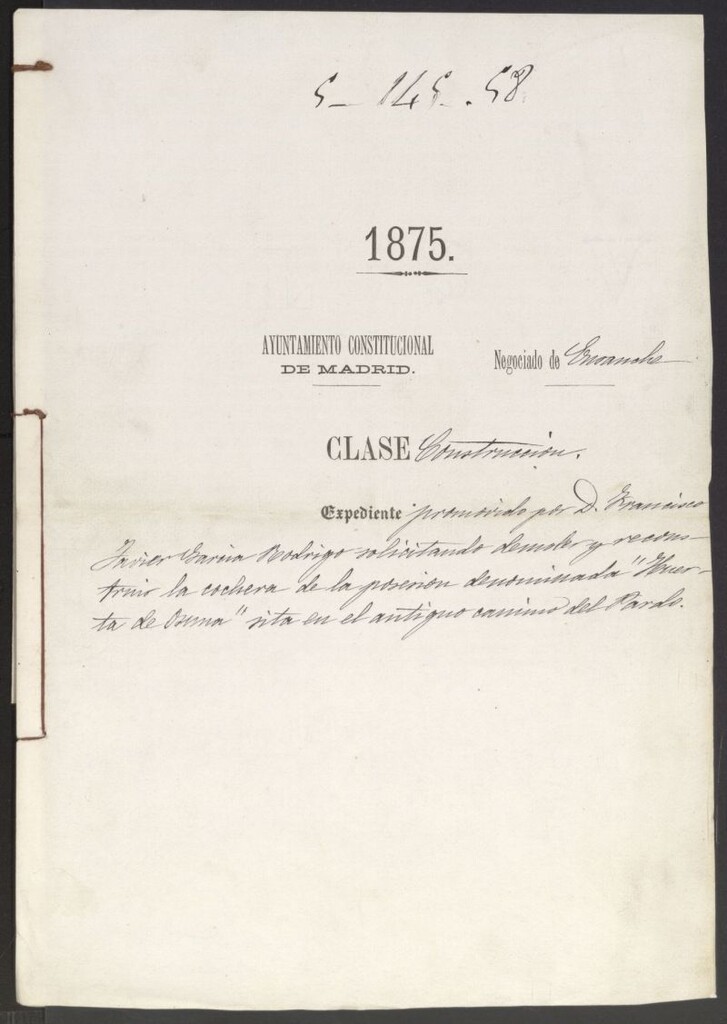 5-145-58
1875.
AYUNTAMIENTO CONSTITUCIONAL
DE MADRID.
Negociado de Ensanche
CLASE Construccion.
Expediente promovido por D. Francisco
Javier Garcia Rodrigo solicitando demoler y recons-
truir la cochera de la posesion denominada "Huer-
ta de Osuna" sita en el antiguo camino del Pardo.